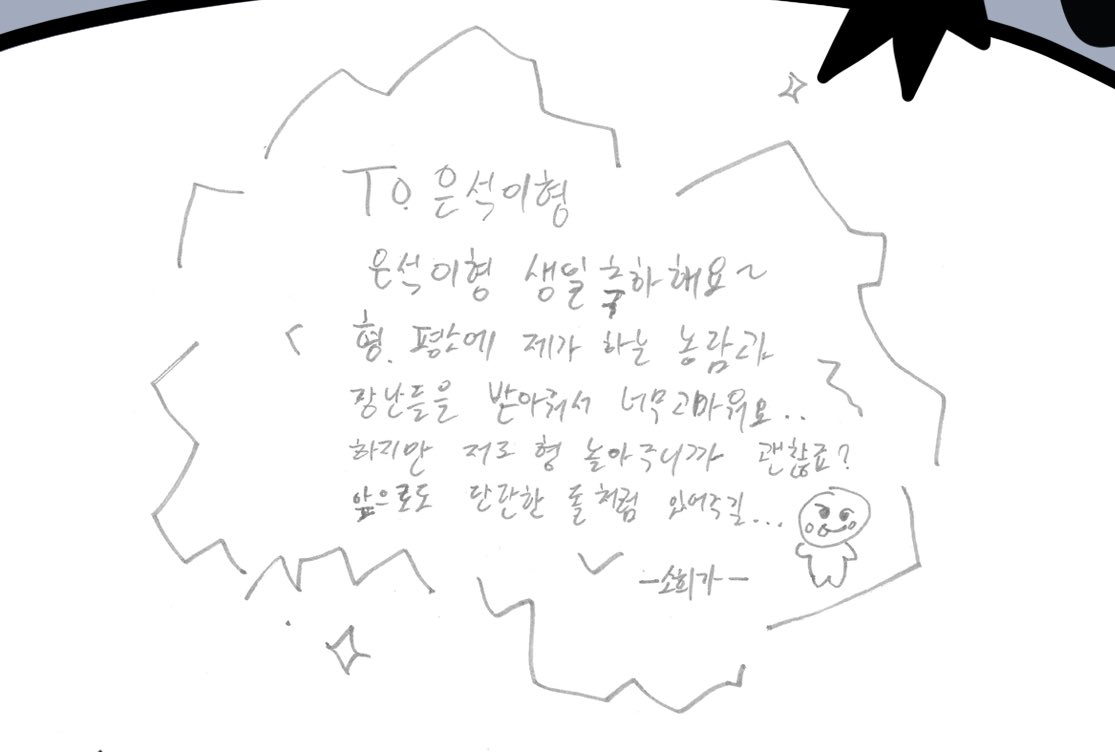 To. 은석이형
은석이형 생일 축하해요~
형. 평소에 제가 하는 농담과
장난들을 받아줘서 너무 고마워요..
하지만 저도 형 놀아주니까 괜찮죠?
앞으로도 단단한 돌처럼 있어주길...
-소희가-